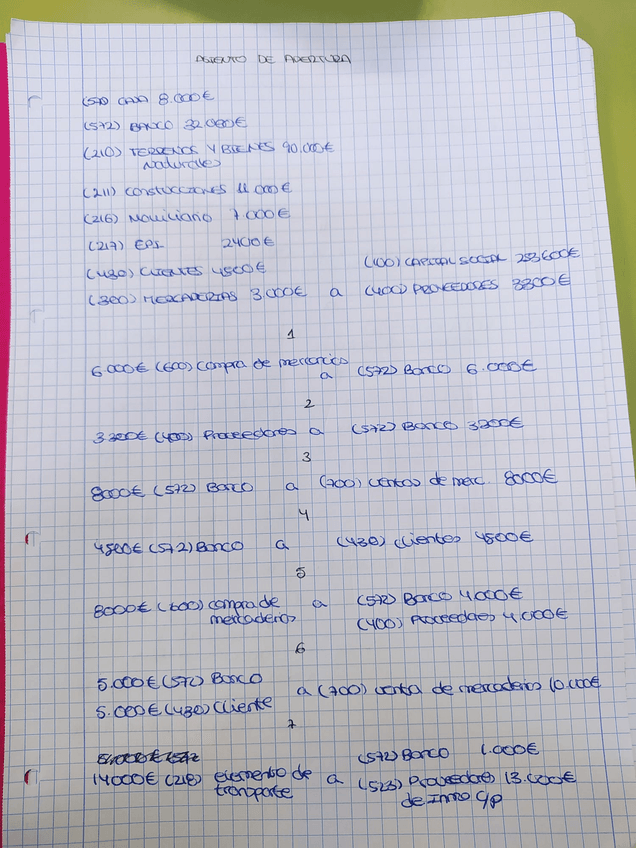 ASIENTO DE APERTURA
(570) CAJA 8.000€
(572) BANCO 32.000€
(210) TERRENOS Y BIENES 90.000€
Naturales
(211) CONSTUCCIONES 11 000€
(216) Mobiliario 7.000€
(217) EPI 2400€
(430) CLIENTES 4500€ (100) CAPITAL SOCIAL 253.600€
(300) MERCADERIAS 3.000€ a (400) PROVEEDORES 3300€
1
6.000€ (600) Compra de mercancias
a (572) Banco 6.000€
2
3300€ (400) Proveedores a (572) Banco 3300€
3
8000€ (572) Banco a (700) Ventas de merc. 8000€
4
4500€ (572) Banco a (430) Clientes 4500€
5
8000€ (600) compra de a (572) Banco 4000€
mercaderias (400) Proveedores 4.000€
6
5.000€ (572) Banco
a (700) venta de mercaderias 10.000€
5.000€ (430) Cliente
7
(572) Banco 1.000€
14000€ (218) elemento de a (523) Proveedores 13.000€
transporte de Inmo C/p